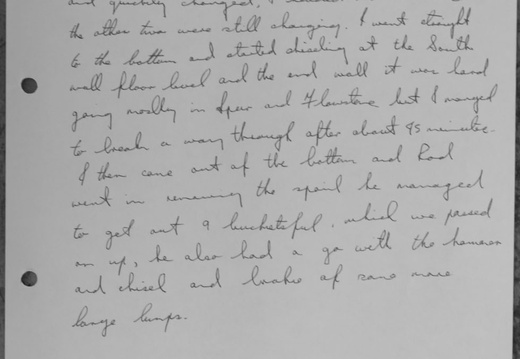 and quickly changed,
the other two were still changing. I went straight
to the bottom and started chiseling at the South
wall floor level and the end wall it was hard
going mostly in Spar and Flowstone but I manged
to break a way through after about 45 minutes.
I then came out of the bottom and Rod
went in removing the spoil he managed
to get out 9 bucketsful, which we passed
on up, he also had a go with the hammer
and chisel and broke of some more
large lumps.